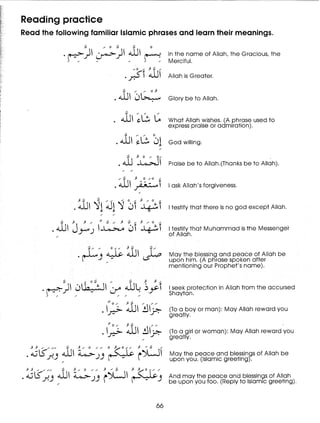 Reading practice
Read the following familiar Islamic phrases and learn their meanings.
بِسْمِ اللهِ الرَّحْمٰنِ الرَّحِيْمِ .
In the name of Allah, the Gracious, the
Merciful.
اَللهُ اَكْبَرُ .
Allah is Greater.
سُبْحَانَ اللهِ .
Glory be to Allah.
مَا شَاءَ اللهُ .
What Allah wishes. (A phrase used to
express praise or admiration).
إِنْ شَاءَ اللهُ .
God willing.
اَلْحَمْدُ لِلّٰهِ .
Praise be to Allah.(Thanks be to Allah).
اَسْتَغْفِرُ اللهَ .
I ask Allah's forgiveness.
اَشْهَدُ اَنْ لَا اِلٰهَ اِلَّا اللهُ .
I testify that there is no god except Allah.
اَشْهَدُ اَنَّ مُحَمَّدًا رَسُوْلُ اللهِ .
I testify that Muhammad is the Messenger
of Allah.
صَلَّى اللهُ عَلَيْهِ وَسَلَّمَ .
May the blessing and peace of Allah be
upon him. (A phrase spoken after
mentioning our Prophet's name).
اَعُوْذُ بِاللهِ مِنَ الشَّيْطَانِ الرَّجِيْمِ .
I seek protection in Allah from the accursed
Shaytan.
جَزَاكَ اللهُ خَيْرًا .
(To a boy or man): May Allah reward you
greatly.
جَزَاكِ اللهُ خَيْرًا .
(To a girl or woman): May Allah reward you
greatly.
اَلسَّلَامُ عَلَيْكُمْ وَرَحْمَةُ اللهِ وَبَرَكَاتُهُ .
May the peace and blessings of Allah be
upon you. (Islamic greeting).
وَعَلَيْكُمُ السَّلَامُ وَرَحْمَةُ اللهِ وَبَرَكَاتُهُ .
And may the peace and blessings of Allah
be upon you too. (Reply to Islamic greeting).
66